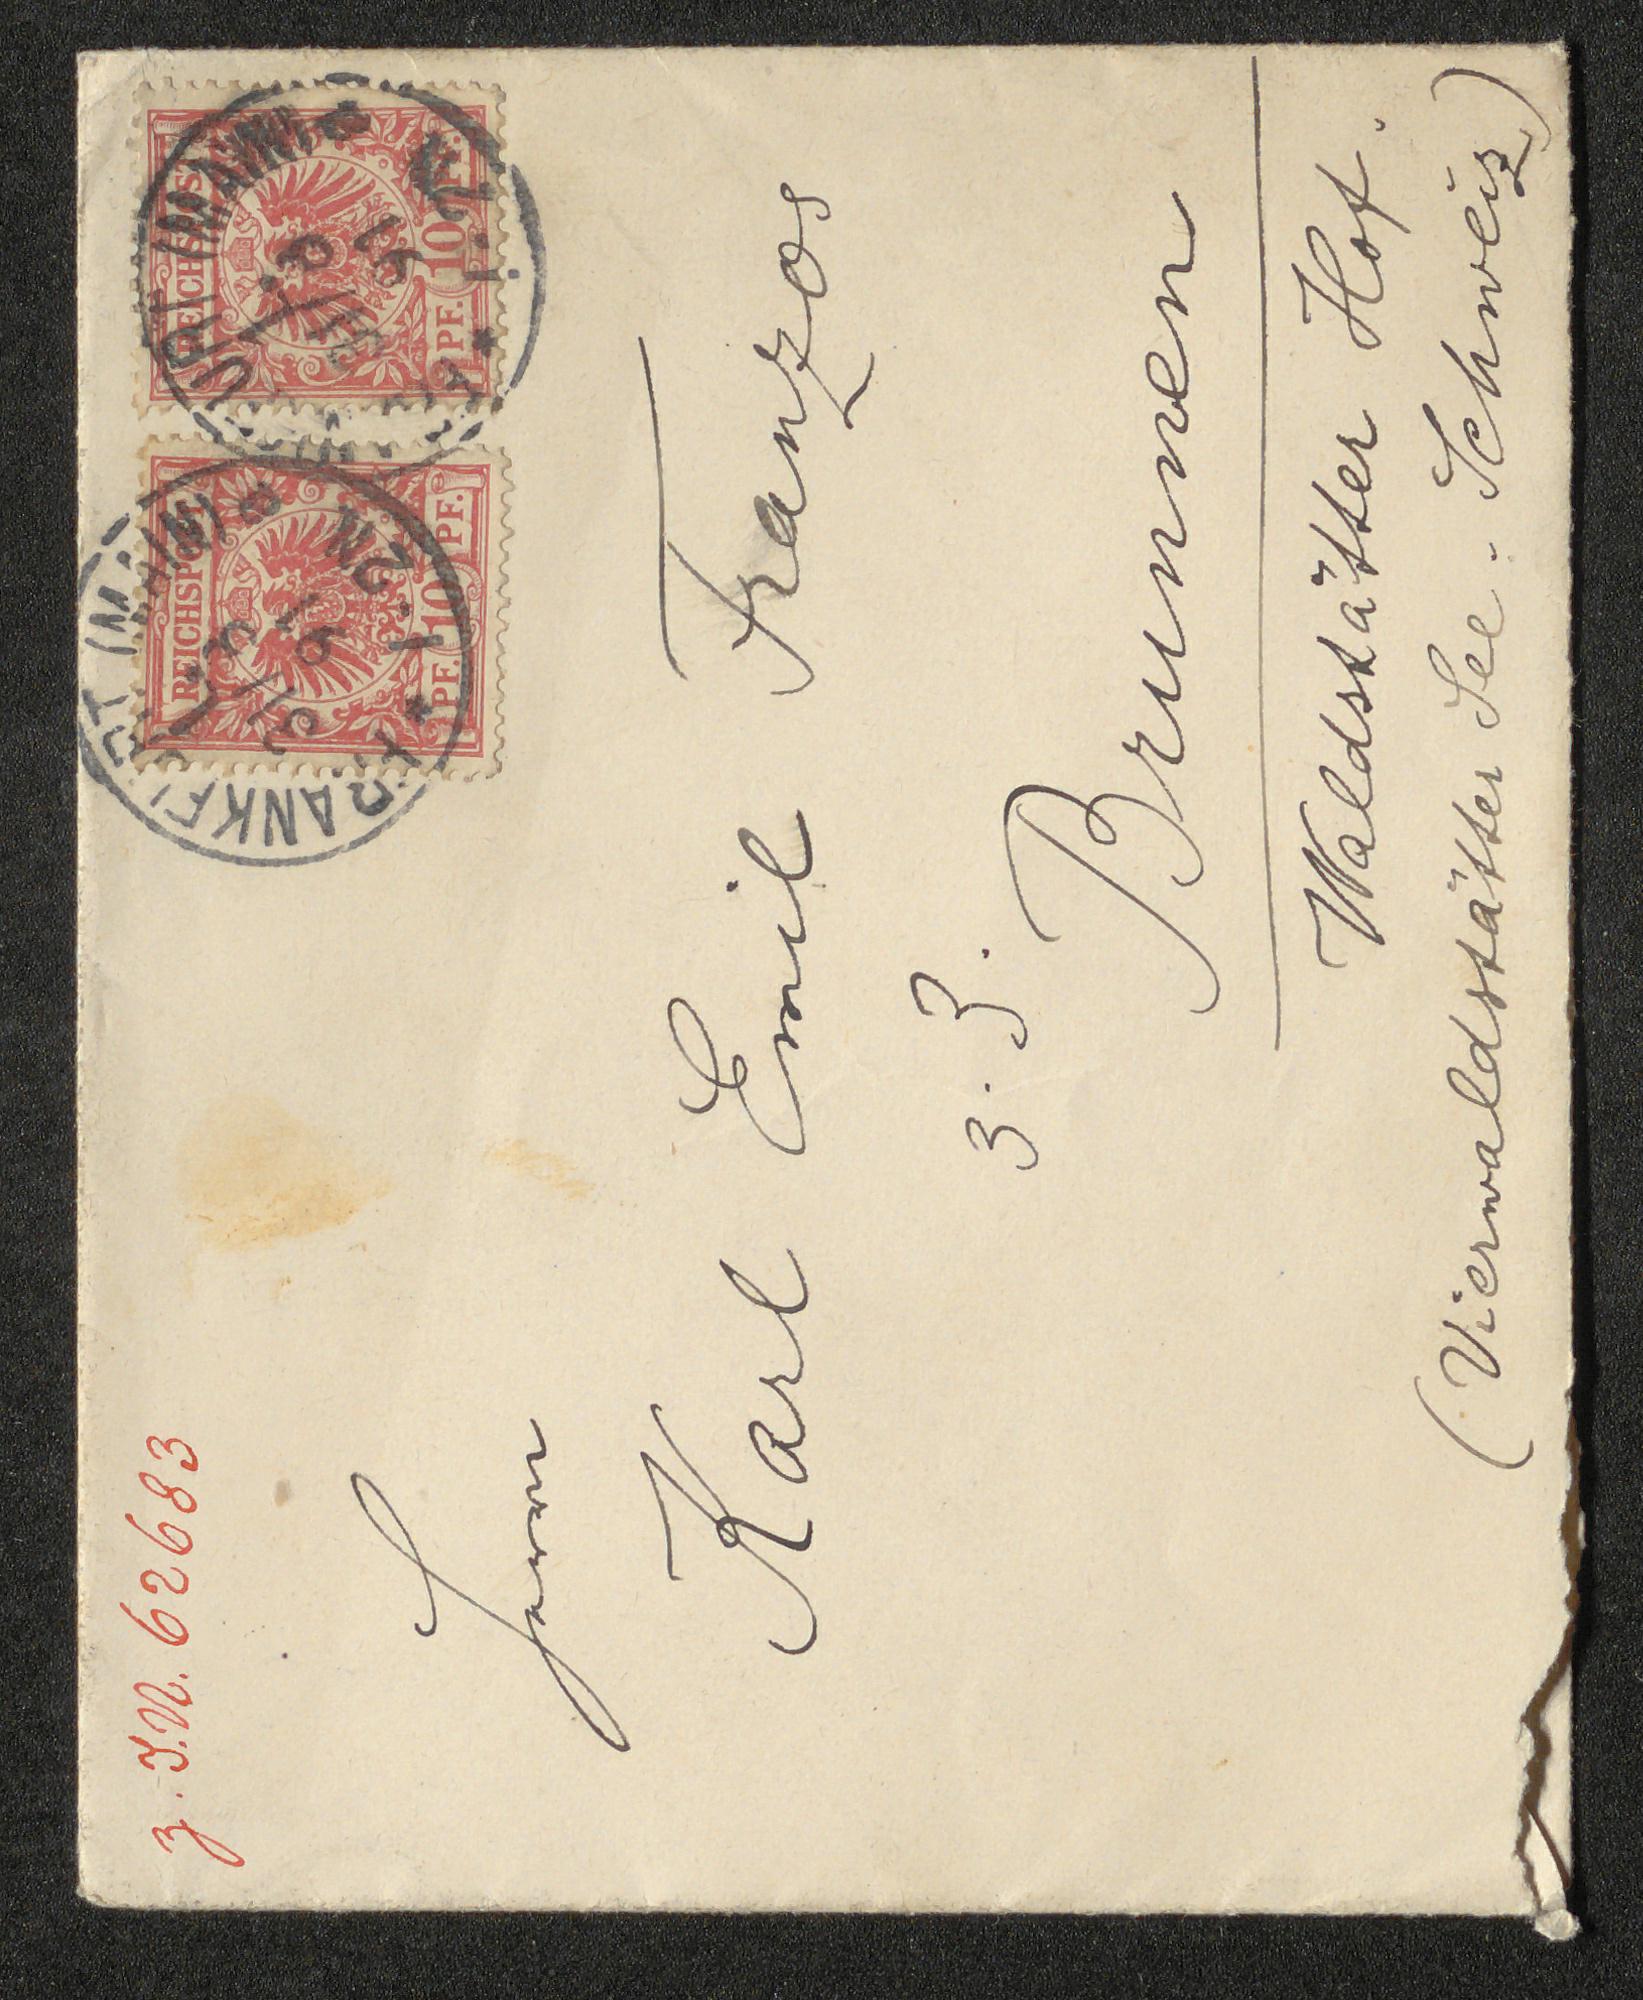 z. I.N. 62683
REICHSPOST
10 PF. 10 PF.
REICHSPOST
10 PF. 10 PF.
FRANKFURT (MAIN)
91
FRANKFURT (MAIN)
91
Herrn
Karl Emil Franzos
z. Z. Brunnen
Waldstätter Hof.
(Vierwaldstätter See. Schweiz)